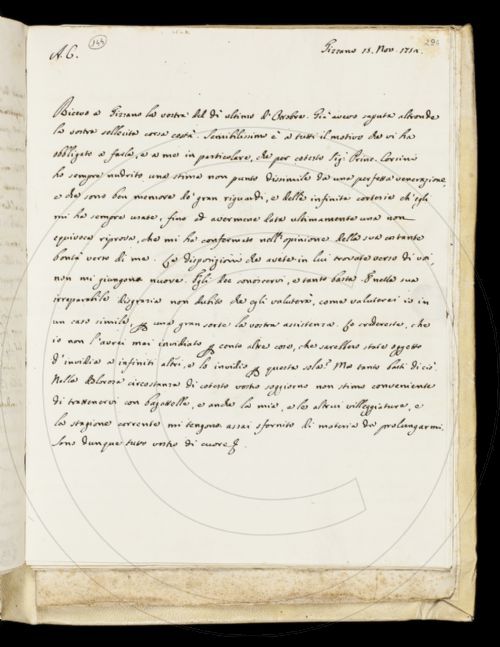 A. C.
144
Pizzano 15. Nov. 1751.
296
Ricevo a Pizzano la vostra del dì ultimo d'Ottobre. Già avevo saputa altronde
la vostra sollecita corsa costà. Sensibilissimo è a tutti il motivo che vi ha
obbligato a farla, e a me in particolare, che per cotesto Sigr. Princ. Corsini
ho sempre nudrito una stima non punto dissimile da una perfetta venerazione,
e che sono ben memore de' gran riguardi, e delle infinite cortesie ch'egli
mi ha sempre usate, fino ad avermene data ultimamente una non
equivoca riprova, che mi ha confermato nell'opinione della sua costante
bontà verso di me. Le disposizioni che avete in lui trovate verso di voi,
non mi giungono nuove. Egli dee conoscervi, e tanto basta. E nella sua
irreparabile disgrazia non dubito che egli valuterà, come valuterei io in
un caso simile, una gran sorte la vostra assistenza. Lo credereste, che
io non l'avrei mai invidiato cento altre cose, che sarebbero state oggetto
d'invidia a infiniti altri, e lo invidio questa sola? Mo tanto basti di ciò.
Nella dolorosa circostanza di cotesto vostro soggiorno non stimo conveniente
di trattenervi con bagattelle, e anche la mia, e le altrui villeggiature, e
la stagione corrente mi tengono assai sfornito di materia da prolungarmi.
Sono dunque tutto vostro di cuore